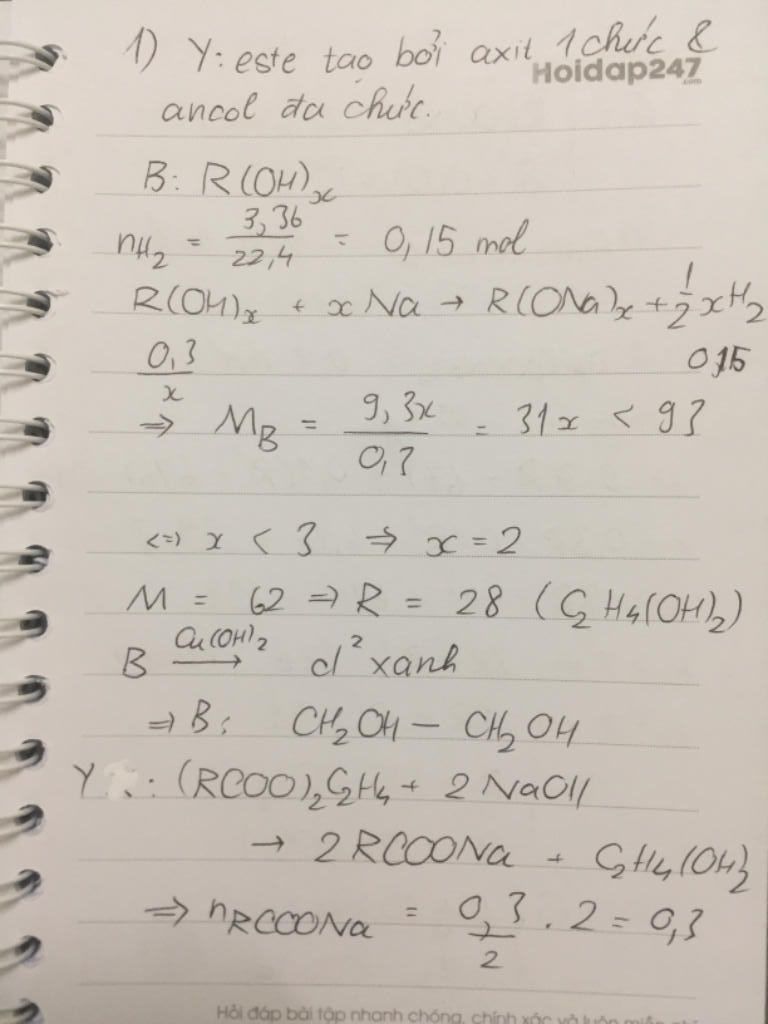 1) Y: este tạo bởi axit 1 chức &
Hoidap247
.com
ancol đa chức.
B: R(OH)x
nH2 = 3,36/22,4 = 0,15 mol
R(OH)x + xNa → R(ONa)x + 1/2 xH2
0,3/x 0,15
=> MB = 9,3x/0,3 = 31x < 93
<=> x < 3 => x = 2
M = 62 => R = 28 (C2H4(OH)2)
B Cu(OH)2→ d² xanh
=> B: CH2OH – CH2OH
Y : (RCOO)2C2H4 + 2NaOH
→ 2RCOONa + C2H4(OH)2
=> nRCOONa = 0,3/2 . 2 = 0,3
Hỏi đáp bài tập nhanh chóng, chính xác và luôn miễn phí